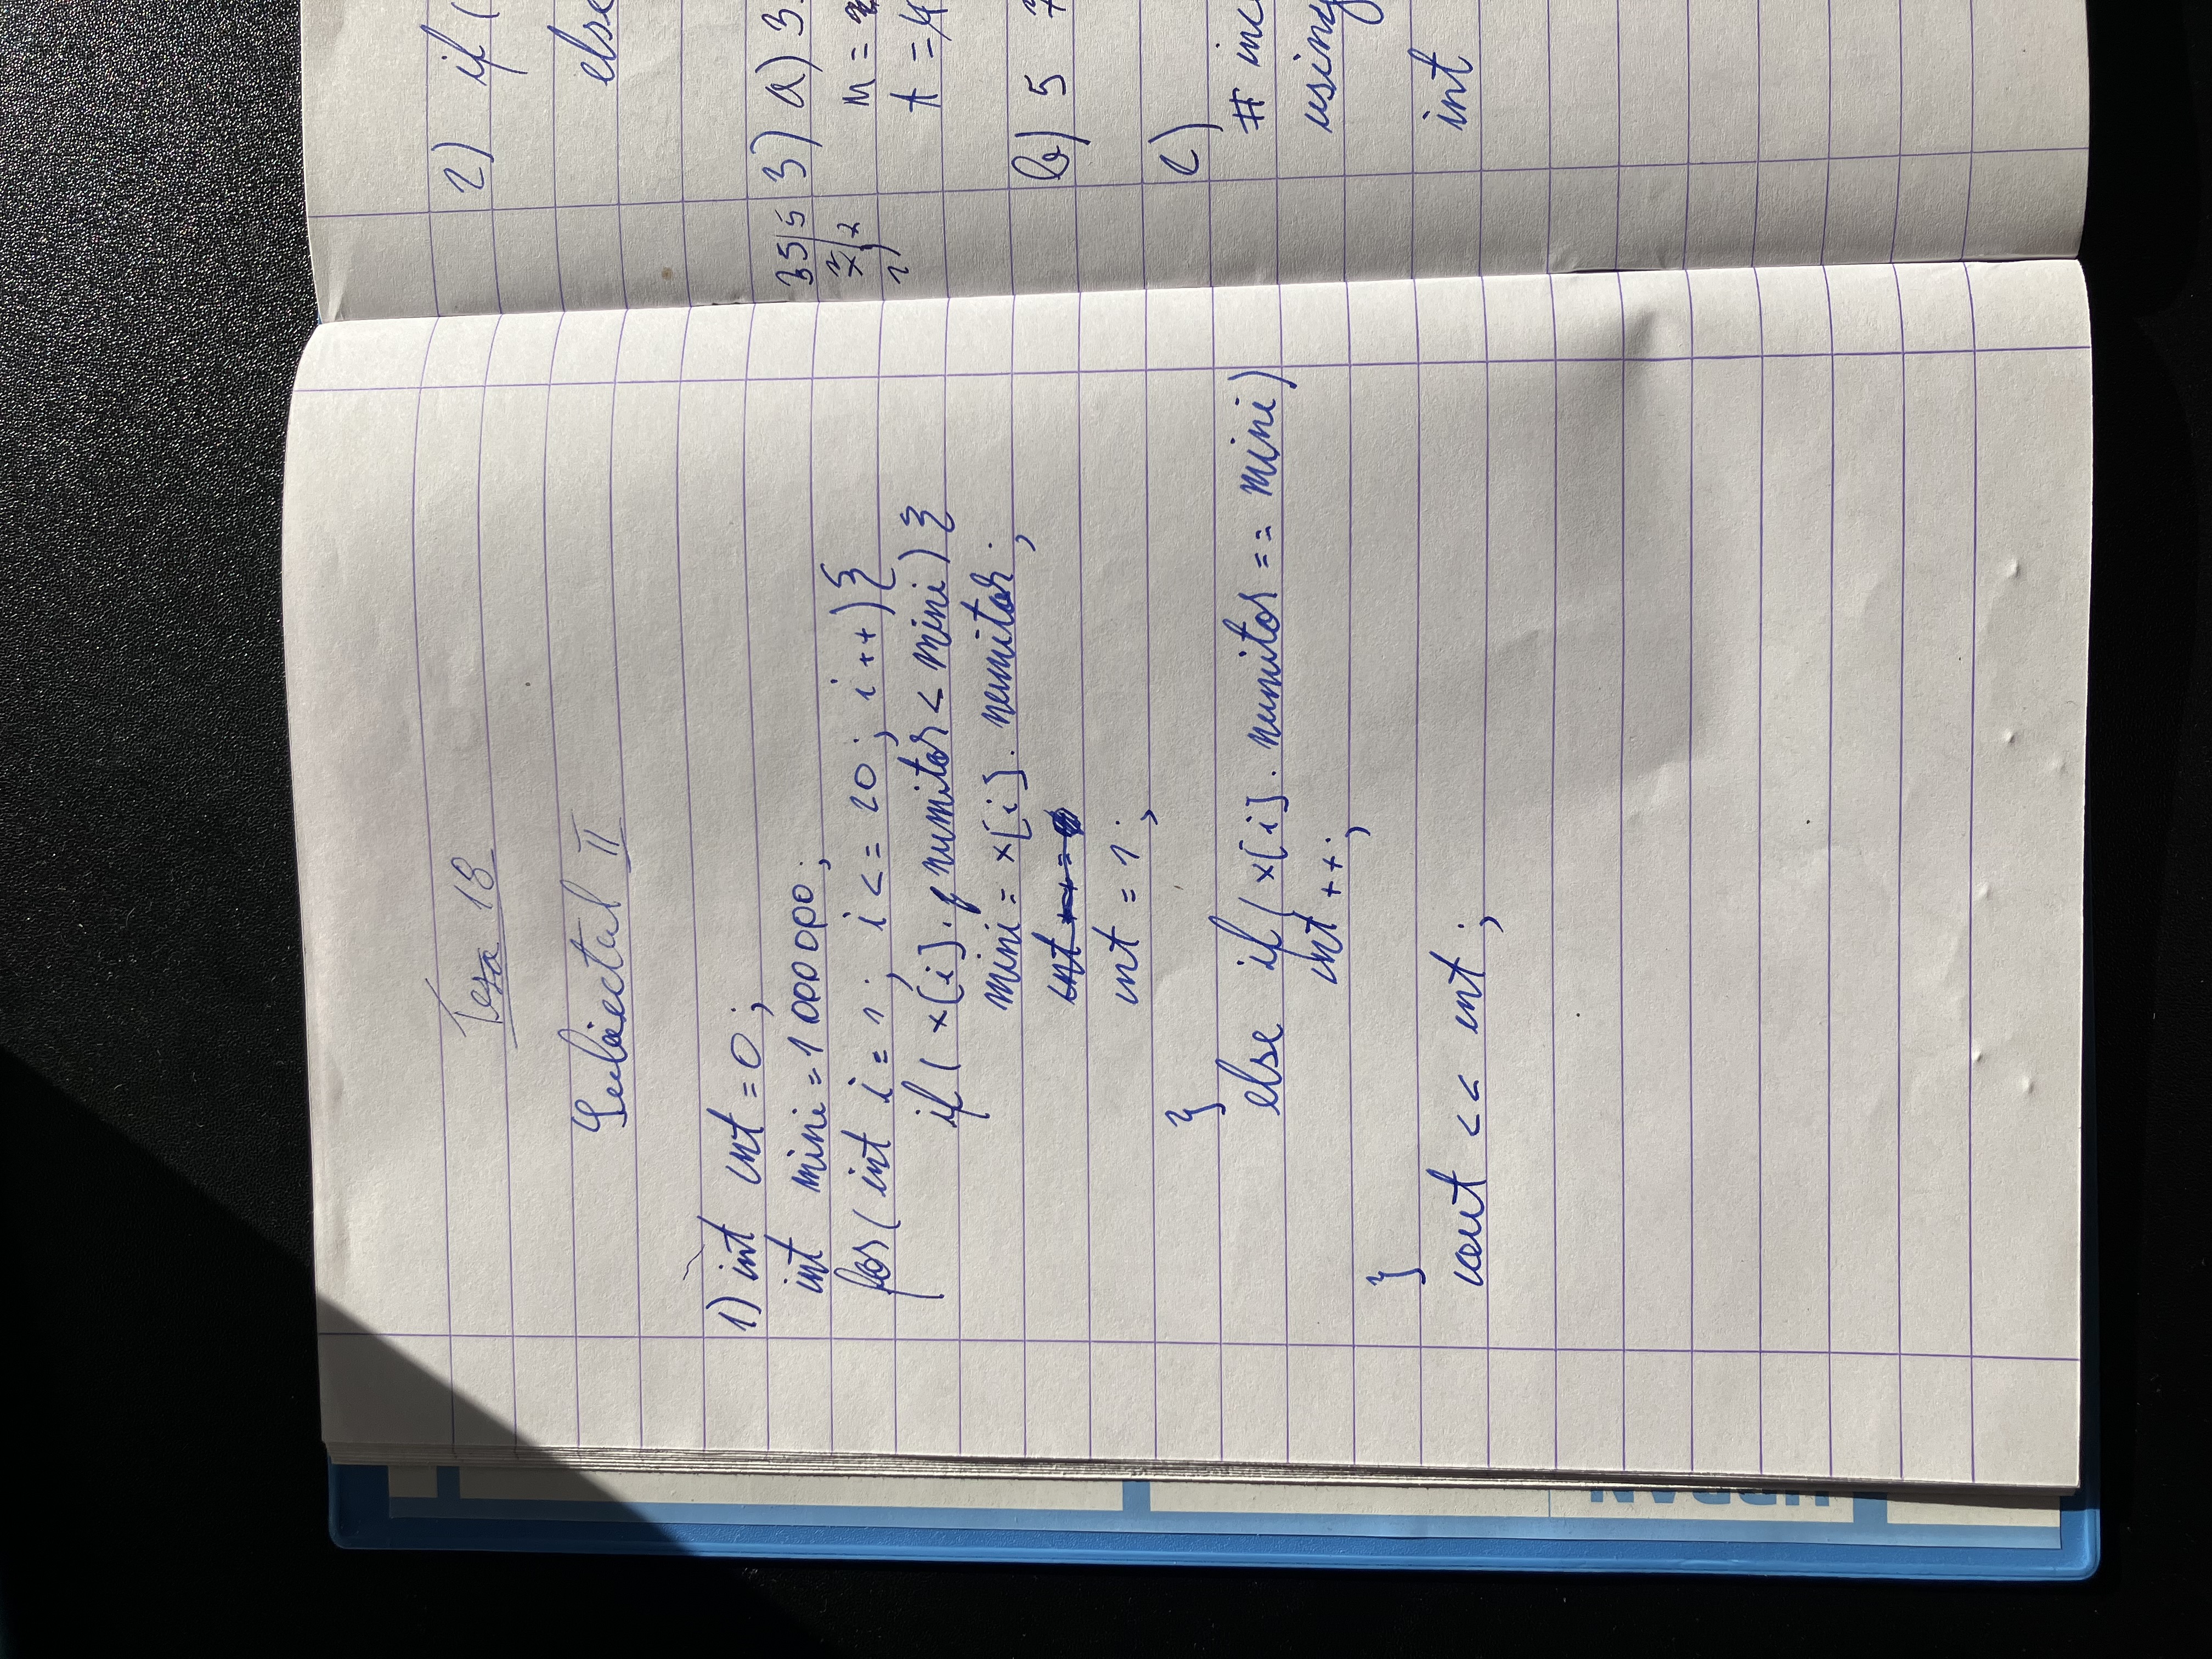 Teza 18
Subiectul II
1) int cnt = 0 ;
int mini = 1 000 000 ;
for ( int i = 1 ; i <= 20 ; i ++ ) {
if ( x[i] . numitor < mini ) {
mini = x[i] . numitor ;
cnt = 1 ;
}
else if ( x[i] . numitor == mini )
cnt ++ ;
}
cout << cnt ;
2) if (
else
35 5
3) a) 3.
n =
t =
b) 5 7
c)
# inc
using
int
URBAN